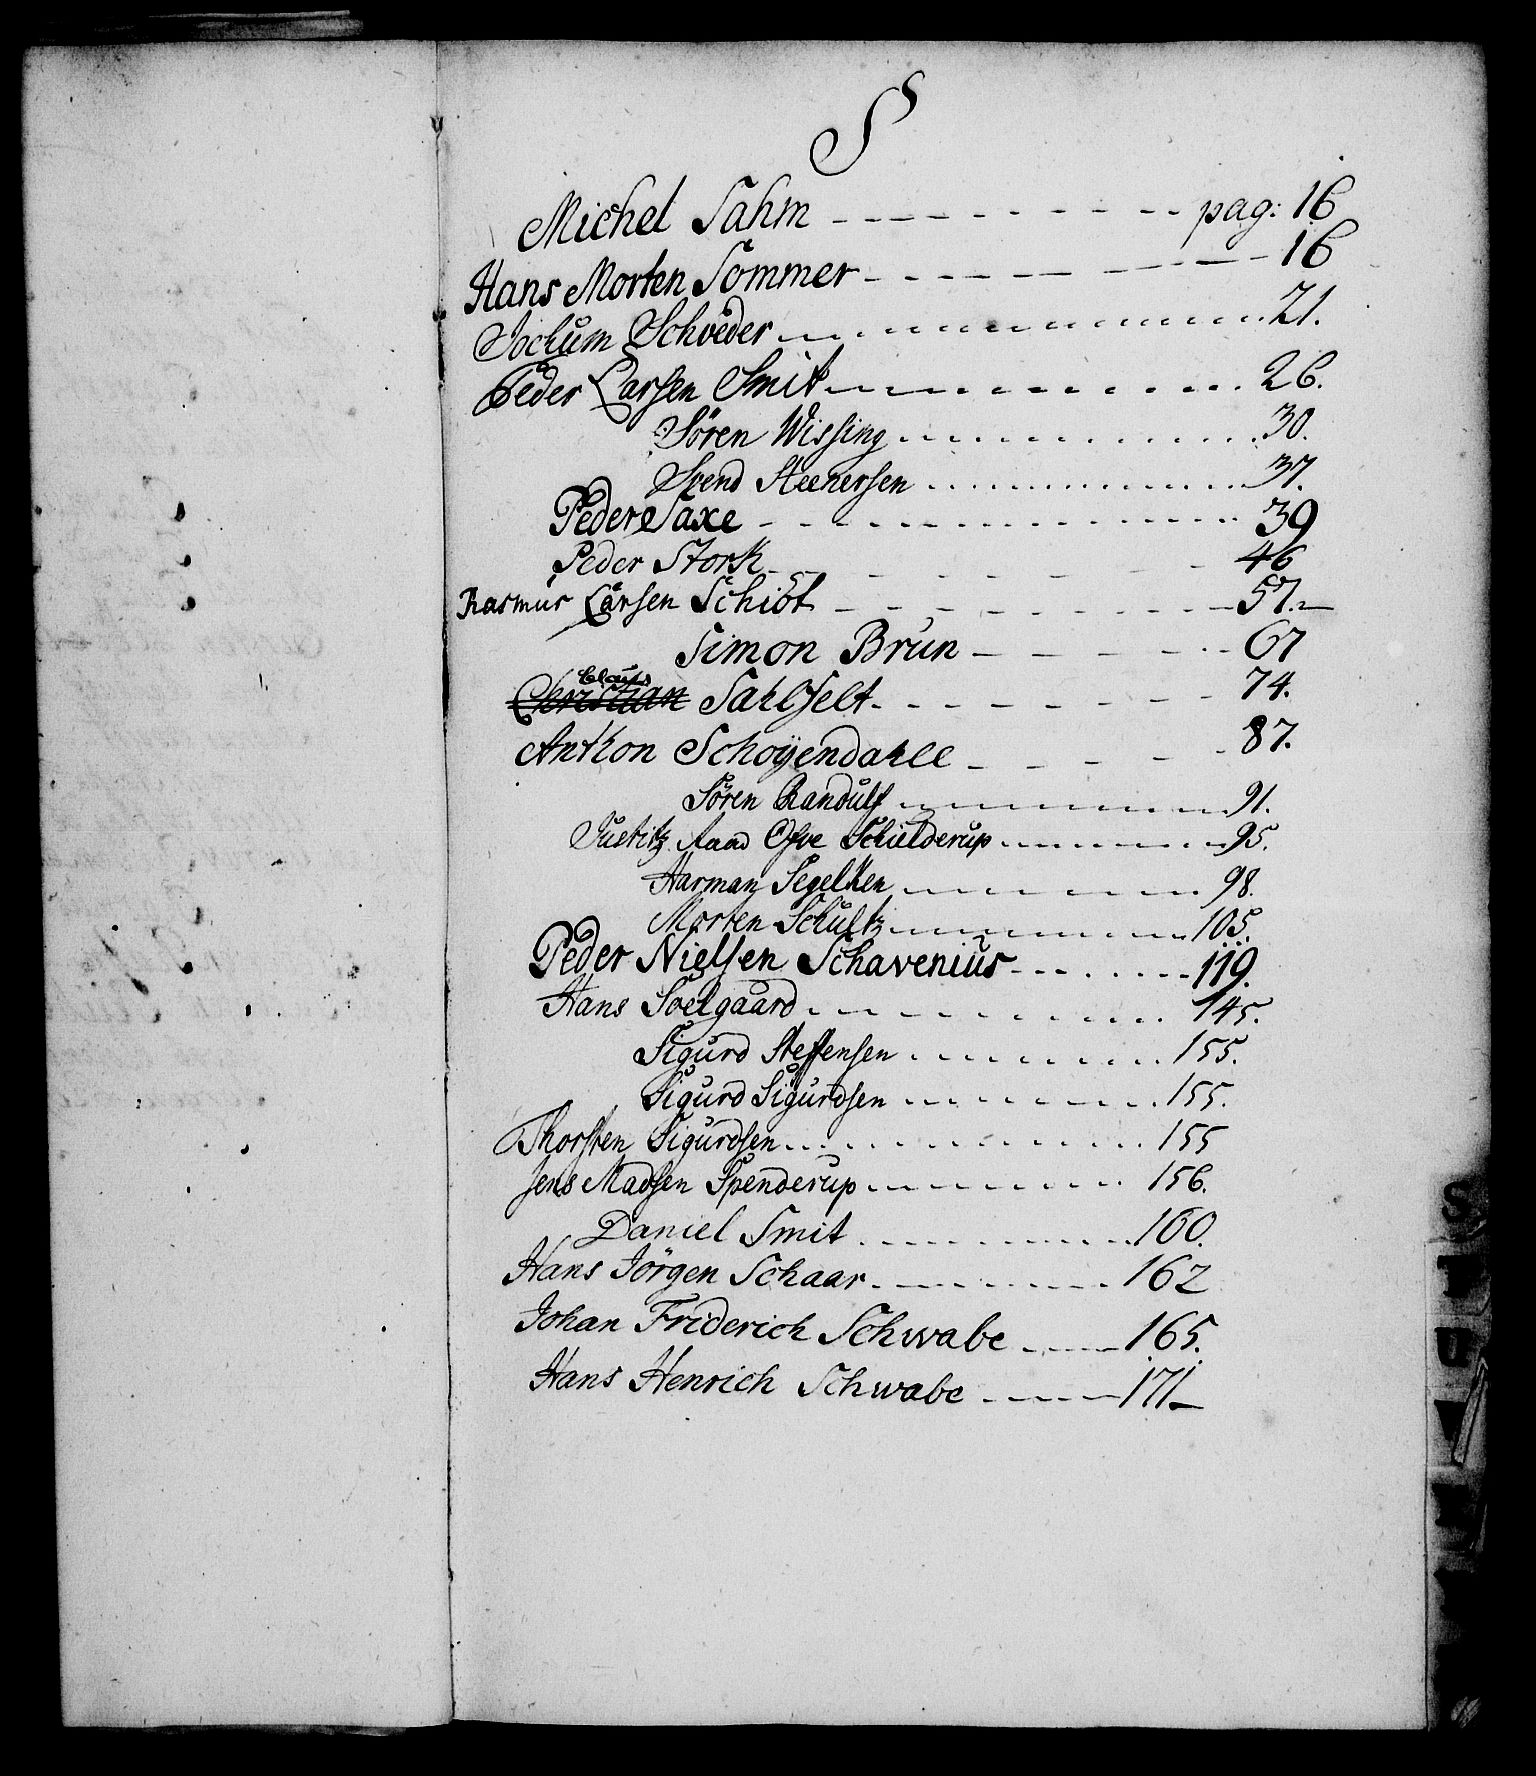 S
Michel Sahm - - - - - - - - - - pag: 16
Hans Morten Sommer - - - - - - - - 16
Jochum Schvéder - - - - - - - - - - 21.
Peder Larsen Smit - - - - - - - - - 26.
Sören Wissing - - - - - - - - - - 30.
Svend Steenersen - - - - - - - - - 37.
Peder Saxe - - - - - - - - - - - 39
Peder Stork - - - - - - - - - - 46
Rasmus Larsen Schiöt - - - - - - - 57.-
Simon Brun - - - - - - 67
Claus
Christian Sahlfelt - - - - - - - 74.
Anthon Schoÿendahll - - - - 87.
Sören Randulf - - - - - - - - 91.
Justitz Raad Ofve Schielderup - - - - - - 95.
Harman Segelken - - - - - - - 98.
Morten Schultz - - - - - - - - 105.
Peder Nielsen Schavenius - - - - - - 119.
Hans Soelgaard - - - - - - - - 145.
Sigurd Steffensen - - - - - - - 155.
Sigurd Sigurdsen - - - - - - - 155.
Thorsten Sigurdsen - - - - - - - - 155
Jens Madsen Spenderup - - - - - - - 156.
Daniel Smit - - - - - - - - 160.
Hans Jörgen Schaar - - - - - - - 162
Johan Friderich Schwabe - - - - 165.
Hans Henrich Schwabe - - - - 171-
S
T
U
V